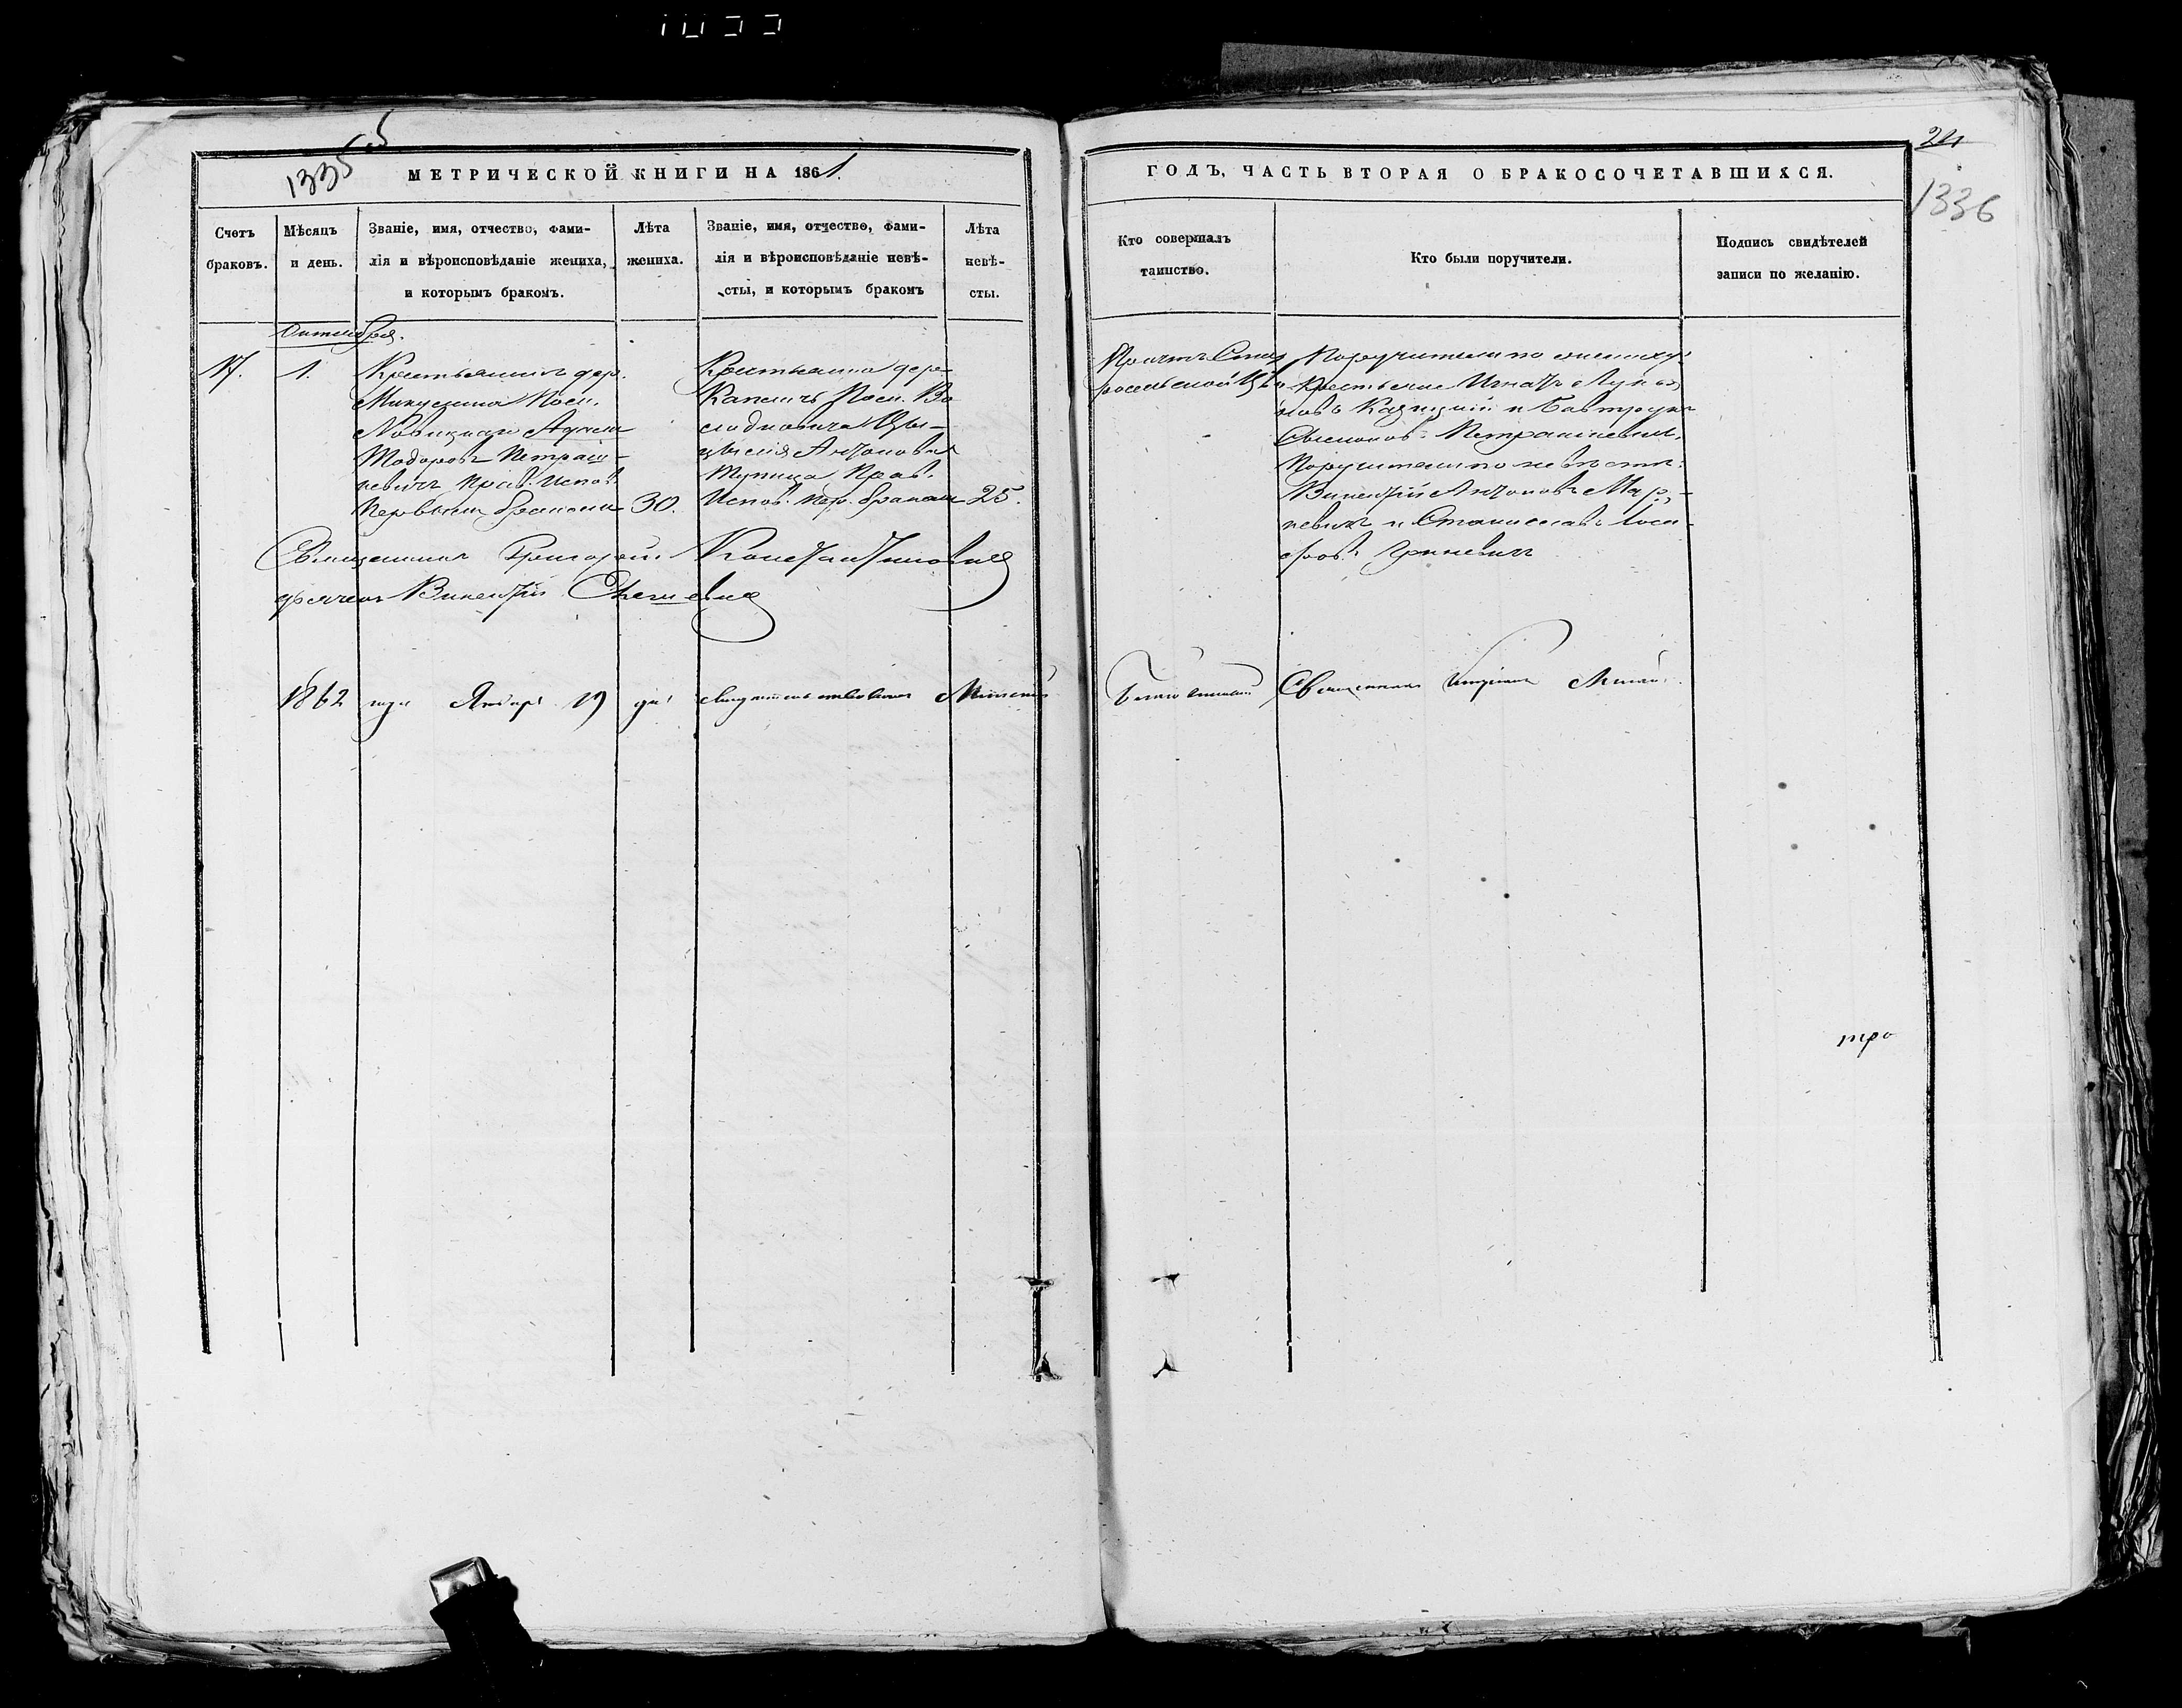 1335
МЕТРИЧЕСКОЙ КНИГИ НА 1861.
Счетъ
браковъ.
Мѣсяцъ
и день.
Званіе, имя, отчество, фами-
лія и вѣроисповѣданіе жениха,
и которымъ бракомъ.
Лѣта
жениха.
Званіе, имя, отчество, фами-
лія и вѣроисповѣданіе невѣ-
сты, и которымъ бракомъ
Лѣта
невѣ-
сты.
Октября.
17.
1.
Крестьянинъ дер.
Микулина Посл.
Новицкаго Адамъ
Тодоровъ Петраш-
кевичъ Прав. Испов.
Первымъ бракомъ
30.
Крестьянка дер-
Антонова
Тупица Прав.
Испов. пер. бракомъ
25.
Священникъ Григорій Константиновичъ
Викентій
1862 года Января 19 дня свидѣтельствовалъ
ГОДЪ, ЧАСТЬ ВТОРАЯ О БРАКОСОЧЕТАВШИХСЯ.
24
1336
Кто совершалъ
таинство.
Кто были поручители.
Подпись свидѣтелей
записи по желанію.
Причтъ Старо
росельской Цер.
Поручители по женихѣ:
Крестьяне Игнатъ Лукья
новъ Казицкій и
Семеновъ Петрашкевич.
Поручители по невѣстѣ:
Викентій Антоновъ Мар-
кевичъ и Станиславъ Іоси-
фовъ Гриневичъ
Благочинный Священникъ
тро